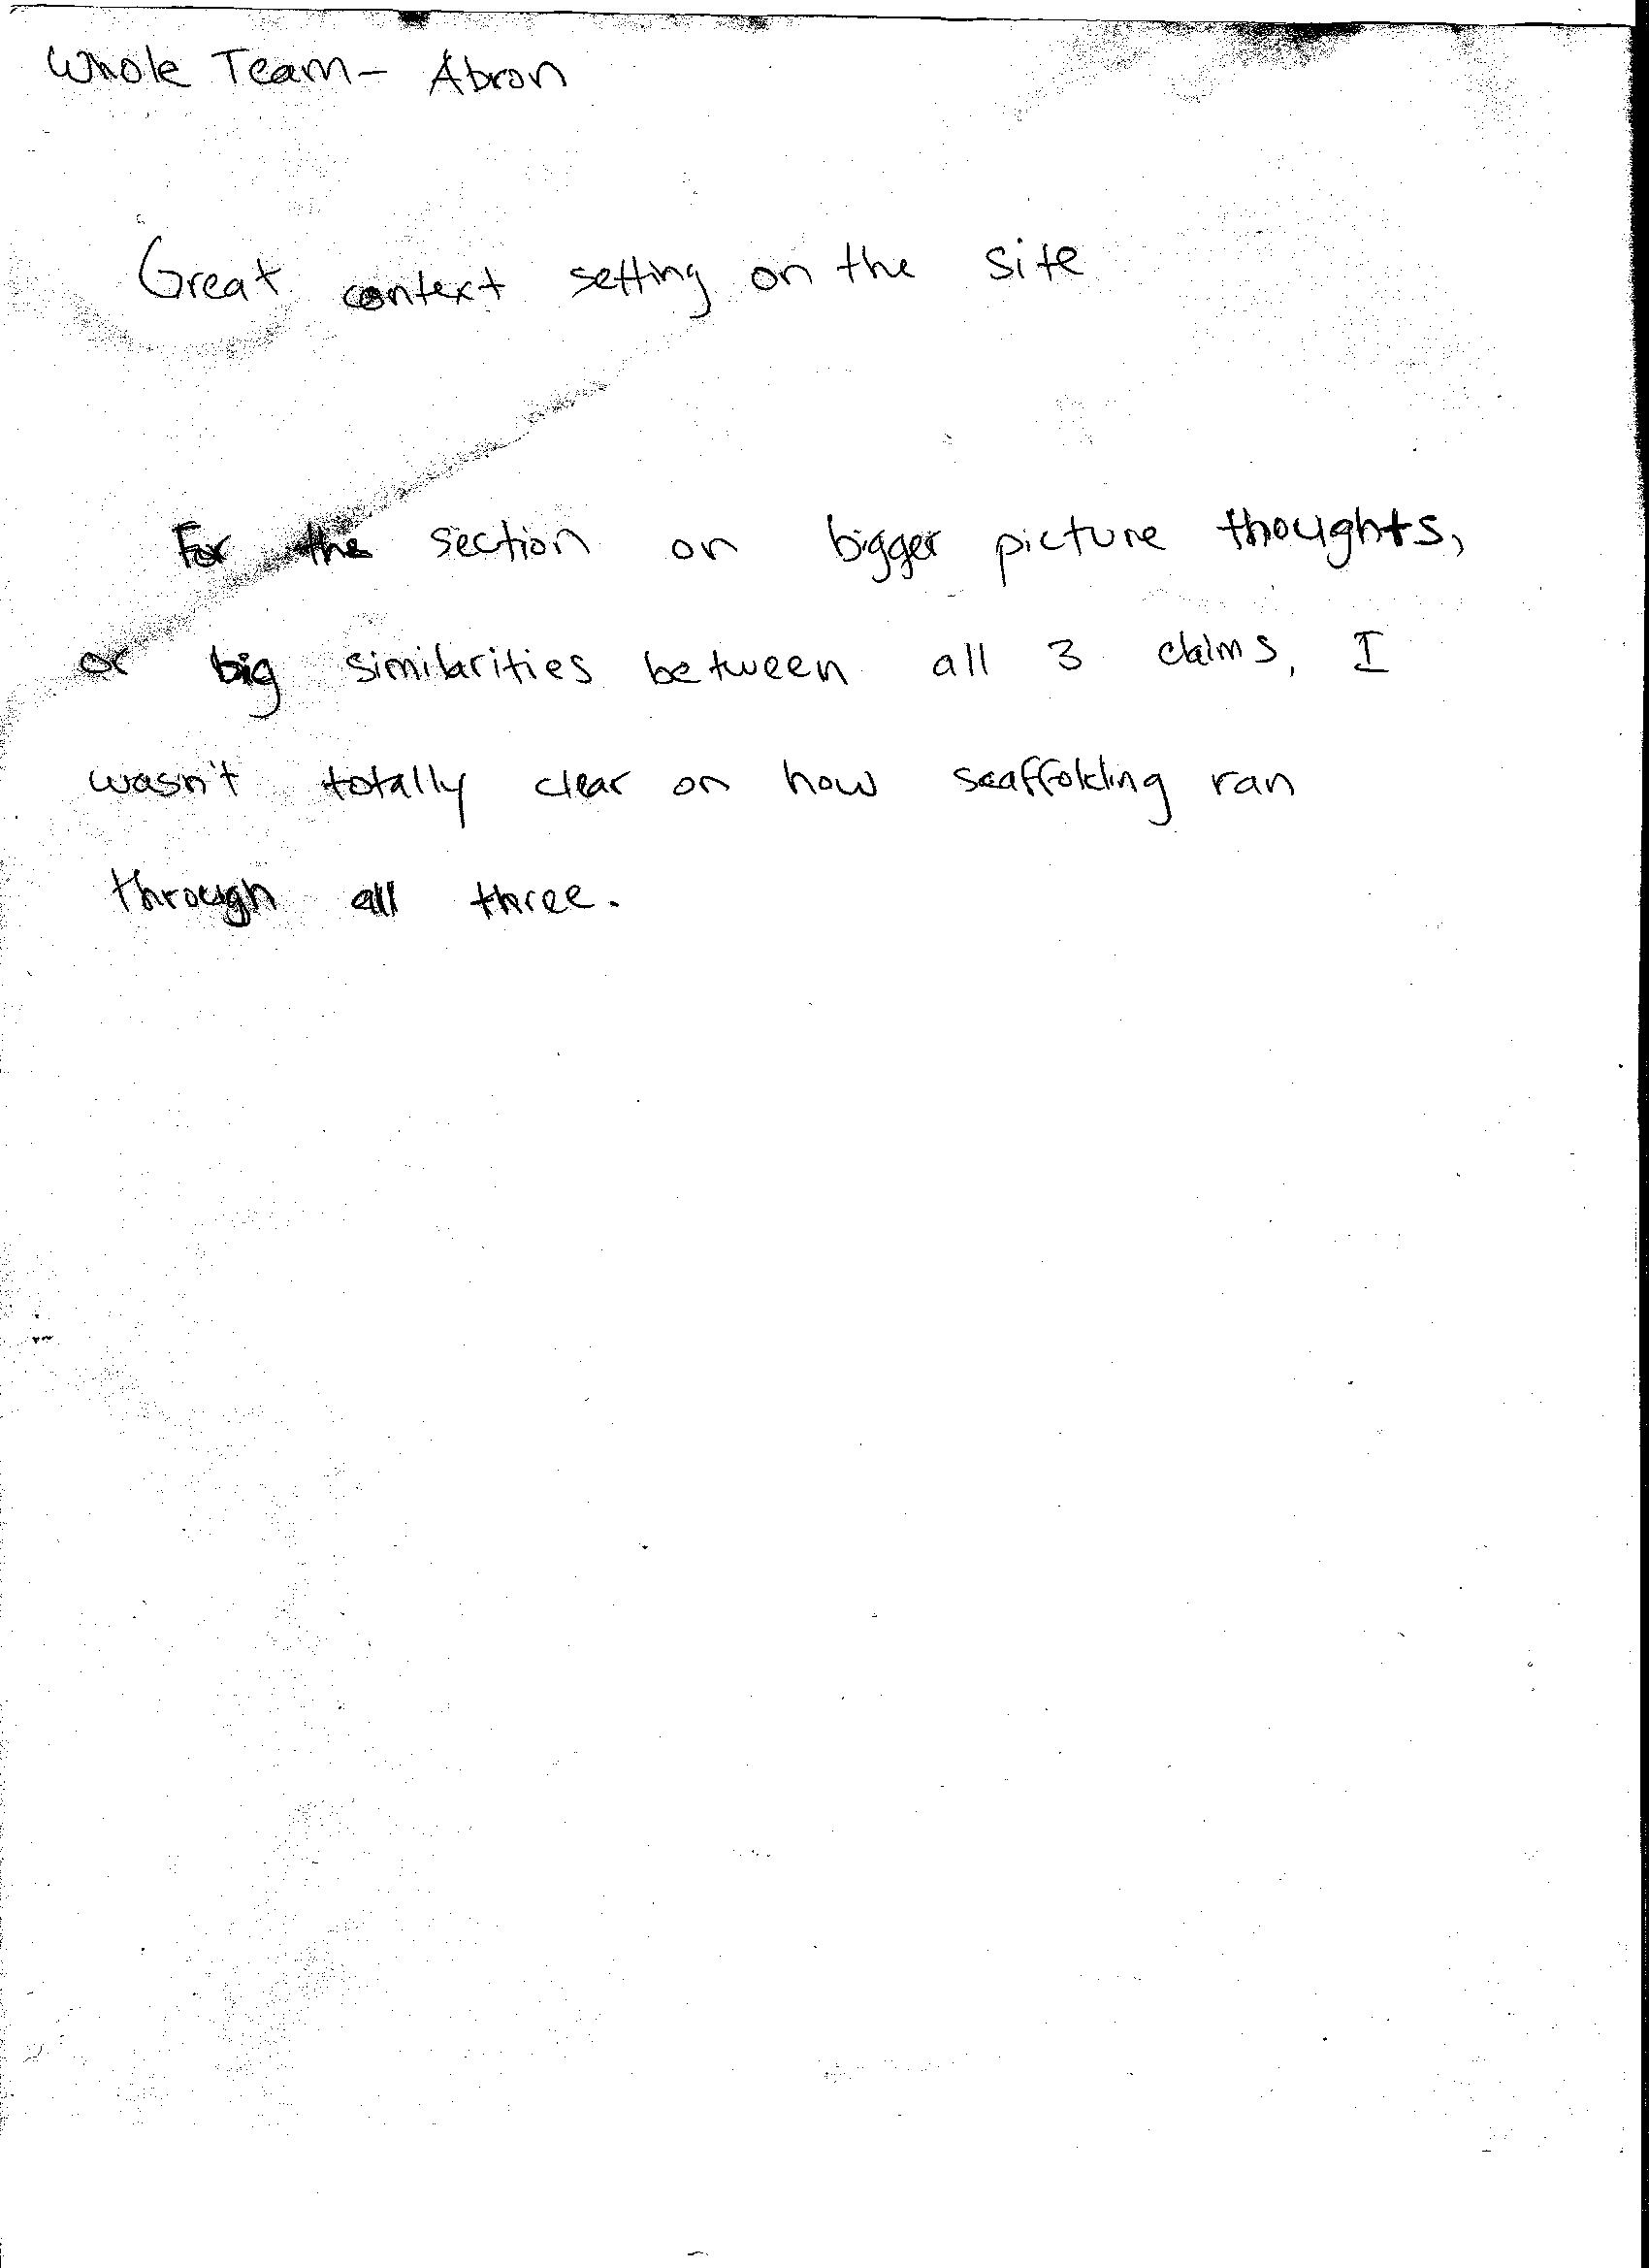 Whole Team - Abron
Great context setting on the site
For the section on bigger picture thoughts,
or big similarities between all 3 claims, I
wasn't totally clear on how scaffolding ran
through all three.